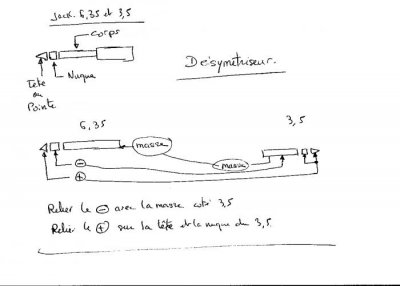 Jack. 6,35 et 3,5
corps
Désymétriseur.
Tête
ou
Pointe
Nuque
6,35
3,5
masse
masse
-
+
Relier le - avec la masse coté 3,5
Relier le + sur la tête et la nuque du 3,5